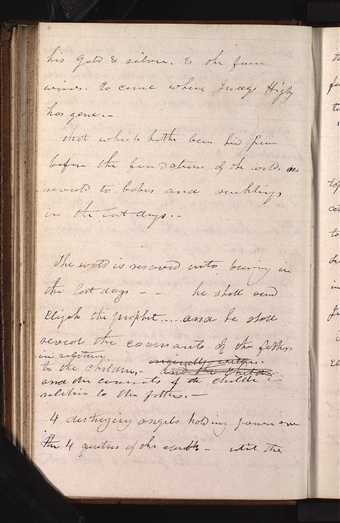 his gold & silver. to the four
winds. to come where Judge Higby
has gone.—
That which hath been hid from
before the foundation of the world is
reveald to babes and sucklings
in the last days..
The world is reserved unto burning in
the last days - - he shall send
Elijah the prophet.....and he shall
reveal the covenants of the fathers
in relation
to the children.—
and the covenants of the children in
relation to the fathers.—
4 destroying angels holding power over
the 4 quarters of the earth— until the